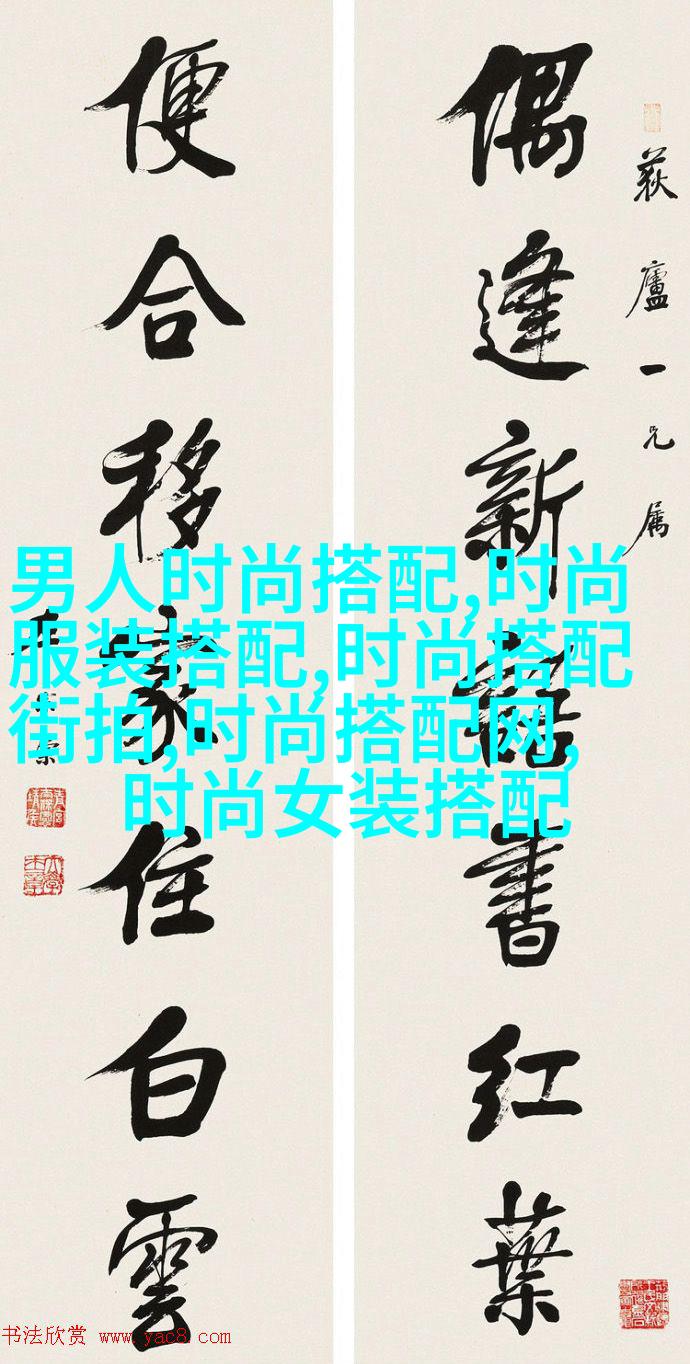 荻廬一兄屬
偶逢新語書紅葉
便合移家住白雲
男人时尚搭配,时尚
服装搭配,时尚搭配
街拍,时尚搭配网,
时尚女装搭配
书法欣赏 www.yac8.com